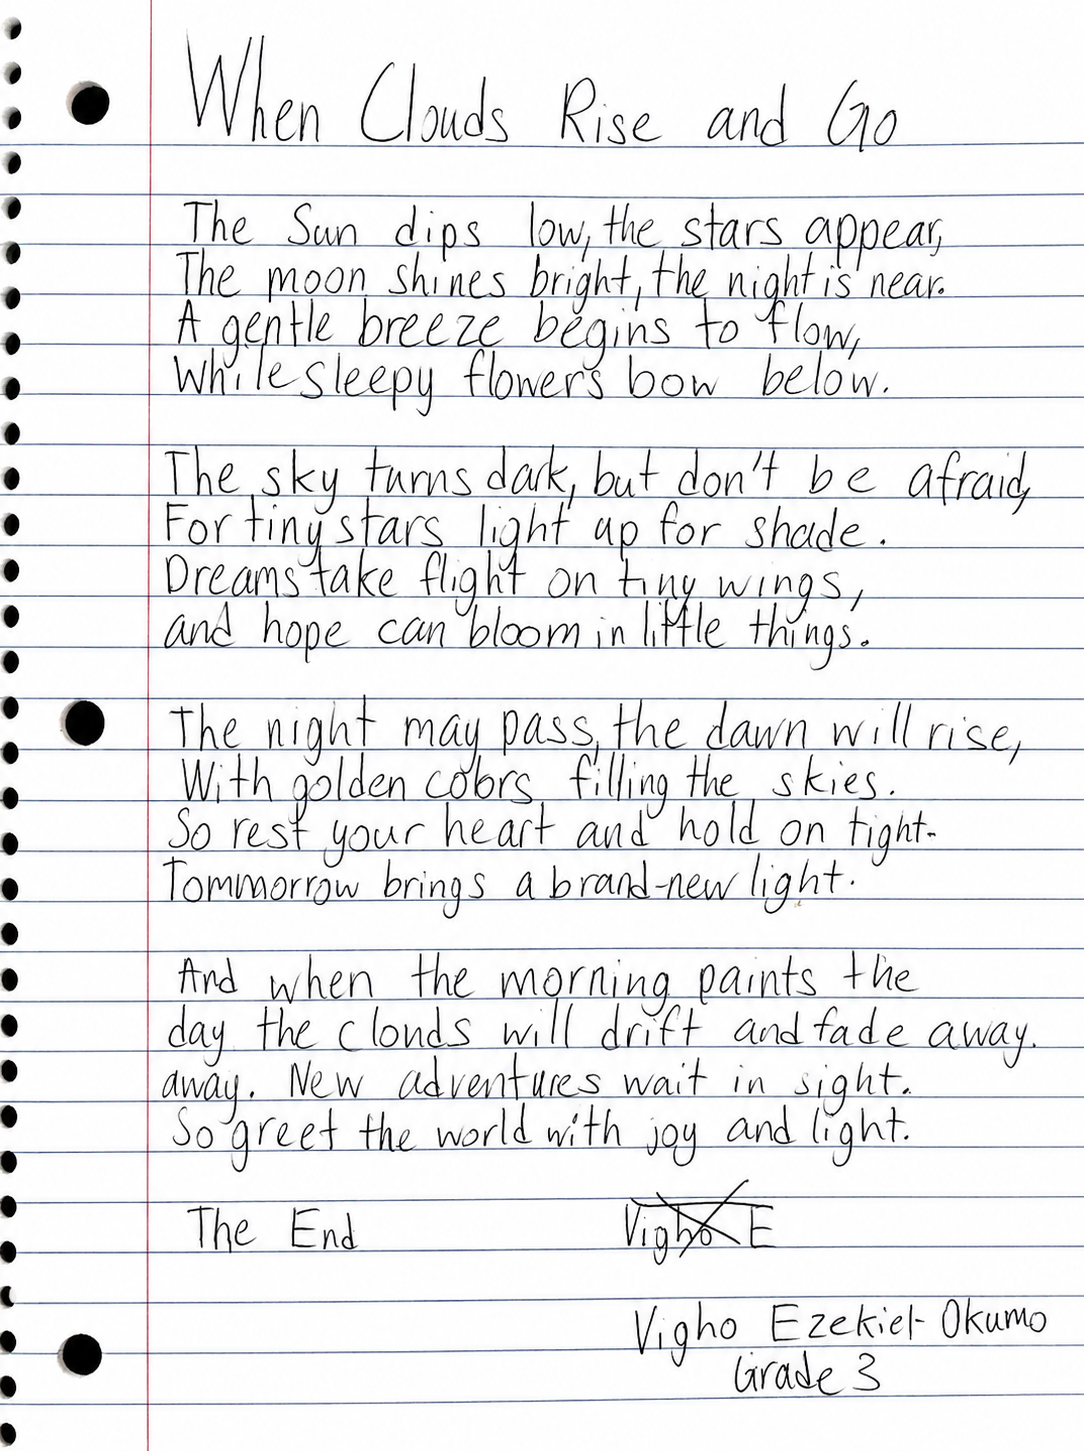 When Clouds Rise and Go
The Sun dips low, the stars appear,
The moon shines bright, the night is near.
A gentle breeze begins to flow,
While sleepy flowers bow below.
The sky turns dark, but don't be afraid,
For tiny stars light up for shade.
Dreams take flight on tiny wings,
and hope can bloom in little things.
The night may pass, the dawn will rise,
With golden colors filling the skies.
So rest your heart and hold on tight-
Tommorrow brings a brand-new light.
And when the morning paints the
day the clouds will drift and fade away.
away. New adventures wait in sight.
So greet the world with joy and light.
The End
Vigho E
Vigho Ezekiel-Okumo
Grade 3